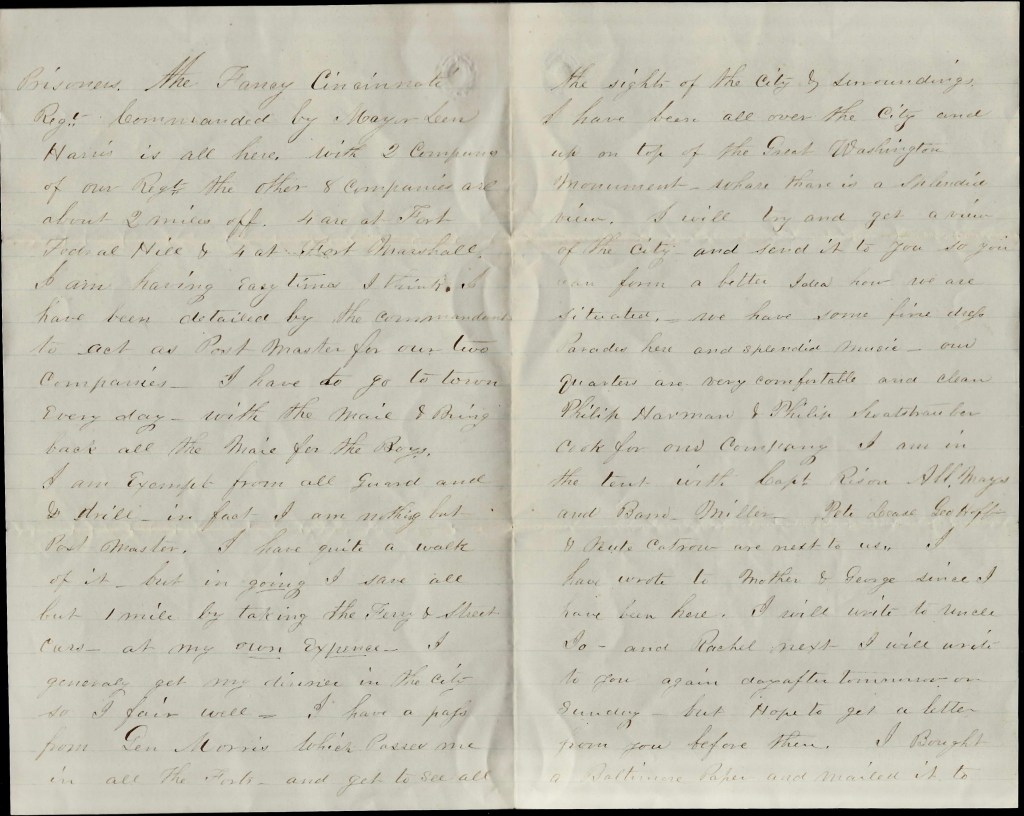 Prisoners. the Fancy Cincinnati
Regt. Commanded by Mayor Len
Harris is all here. with 2 Companes
of our Regt. the other 8 Companies are
about 2 miles off. 4 are at Fort
Federal Hill & 4 at Fort Marshall.
I am having Easy time I think. I
have been detailed by the Commandant
to act as Post Master for our two
Companies - I have to go to town
Every day - with the Mail & Bring
back all the Mail for the Boys.
I am Exempt from all Guard and
& drill - in fact I am nothing but
Post Master. I have quite a walk
of it - but in going I save all
but 1 mile by taking the Fery & Street
Cars - at my own Expence - I
generaly get my dinner in the City
so I fair well - I have a pass
from Gen Morris which Passes me
in all the Forts - and get to see all
the sights of the City & Surroundings.
I have been all over the City and
up on top of the Great Washington
Monument - whare thare is a Splendid
view. I will try and get a view
of the City - and send it to you so you
can form a better Idea how we are
Situated. - we have some fine dress
Parades here and splendid Music - our
Quarters are very comfortable and clean
Philip Harman & Philip
Cook for our Company I am in
the tent with Capt Rison Ab. Mays
and Miller. Pete
& Catrow are next to us. I
have wrote to Mother & George since I
have been here. I will write to uncle
Jo - and Rachel next I will write
to you again day after tomorrow or
Sunday - but Hope to get a letter
from you before then. I Bought
a Baltimore Paper and mailed it to